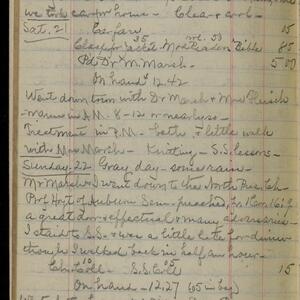 we took car for home - Clear & cool - 15
Sat. 21 Car fare
Clasp for Jacket 35 Mrs Bible 85
Pd Dr M. Marsh - 5 00
On hand 12.42
Went down town with Dr Marsh & Mrs
in A.M. 8-12 or near by so -
Treatment in P.M. - baths & little walk
with Mrs Marsh - Knotting - S.S. lessons -
Sunday 22 Gray day - some rain -
Mr Marsh & I went down to the North Pres. Ch
Prof Hoyt of Auburn Sem. preached, fr 1 Cor. 16:9
a great door & effectual & many adversaries -
I staid to S.S. & was a little late for dinner
though I walked back in half an hour -
Ch. Coll 10 S.S. Coll 05 15
On hand - 12.27 (05 in bag)